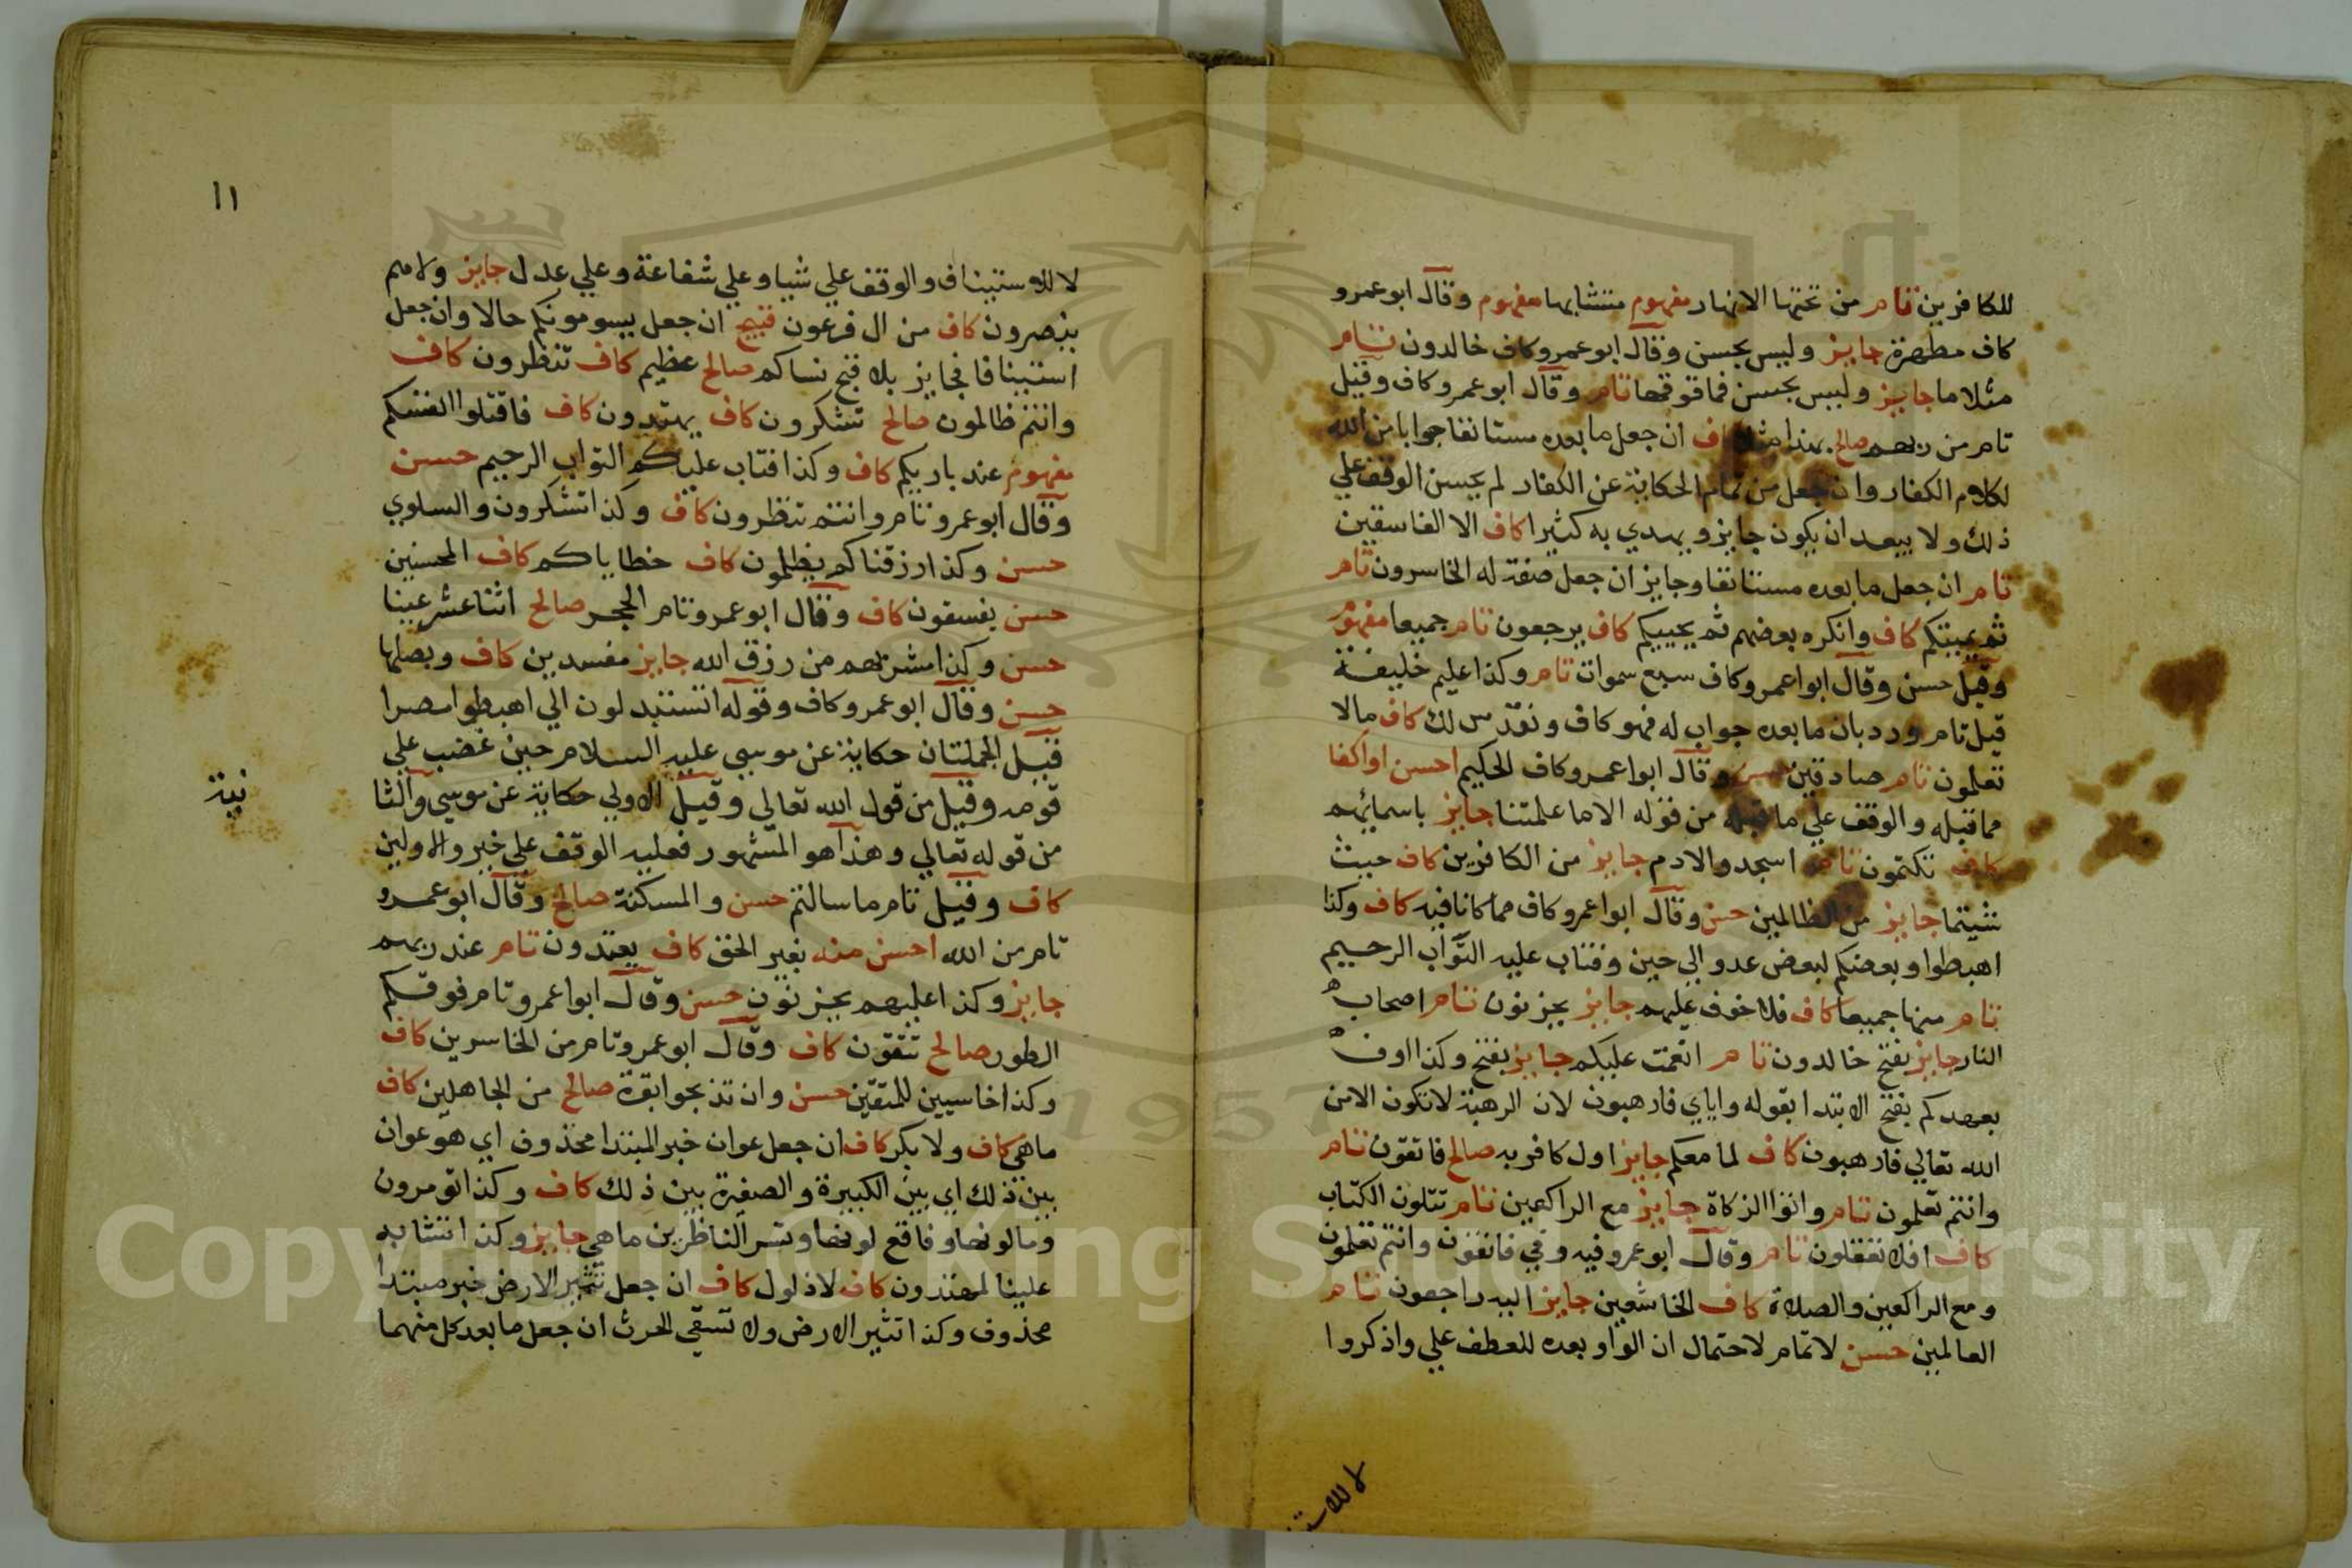 للكافرين تام من تحتها الانهار مفهوم متشابها مفهوم وقال ابو عمرو
كاف مطهرة جايز وليس بحسن وقال ابو عمرو كاف خالدون تام
مثلا ما جايز وليس بحسن فما فوقها تام وقال ابو عمرو كاف وقيل
تام من ربهم صالح بهذا مثلا كاف ان جعل ما بعده مستانفا جوابا من الله
لكلام الكفار وان جعل من تمام الحكاية عن الكفار لم يحسن الوقف علي
ذلك ولا يبعد ان يكون جايز ويهدي به كثيرا كاف الا الفاسقين
تام ان جعل ما بعده مستانفا وجايز ان جعل صفة له الخاسرون تام
ثم يميتكم كاف وانكره بعضهم ثم يحييكم كاف يرجعون تام جميعا مفهوم
وقيل حسن وقال ابوا عمرو كاف سبع سموات تام وكذا عليم خليفة
قيل تام ورد بان ما بعده جواب له فهو كاف ونقدس لك كاف مالا
تعلمون تام صادقين حسن وقال ابوا عمرو كاف الحكيم احسن او اكفا
مما قبله والوقف علي ما قبله من قوله الا ما علمتنا جايز باسمائهم
كاف تكتمون تام اسجدوا لادم جايز من الكافرين كاف حيث
شيتما جايز من الظالمين حسن وقال ابوا عمرو كاف مما كانا فيه كاف وكذا
اهبطوا وبعضكم لبعض عدو الي حين وفتاب عليه التواب الرحيم
تام منها جميعا كاف فلا خوف عليهم جايز يحزنون تام اصحاب
النار جايز بقبح خالدون تام انعمت عليكم جايز بقبح وكذا اوف
بعهدكم بقبح الابتدا بقوله واياي فارهبون لان الرهبة لا تكون الا من
الله تعالي فارهبون كاف لما معكم جايز اول كافر به صالح فاتقون تام
وانتم تعلمون تام واتوا الزكاة جايز مع الراكعين تام تتلون الكتاب
كاف افلا تعقلون تام وقال ابو عمرو فيه وفي فاتقون وانتم تعلمون
ومع الراكعين والصلاة كاف الخاشعين جايز اليه راجعون تام
العالمين حسن لا تمام لاحتمال ان الواو بعده للعطف علي واذكروا
لا للاست
١١
لا للاستيناف والوقف علي شيا وعلي شفاعة وعلي عدل جايز ولا هم
ينصرون كاف من ال فرعون قبيح ان جعل يسومونكم حالا وان جعل
استينافا فجايز بلا قبح نساكم صالح عظيم كاف تنظرون كاف
وانتم ظالمون صالح تشكرون كاف يهتدون كاف فاقتلوا انفسكم
مفهوم عند باريكم كاف وكذا فتاب عليكم التواب الرحيم حسن
وقال ابو عمرو تام وانتم تنظرون كاف وكذا تشكرون والسلوي
حسن وكذا رزقناكم يظلمون كاف خطاياكم كاف المحسنين
حسن يفسقون كاف وقال ابو عمرو تام الحجر صالح اثنا عشر عينا
حسن وكذا مشربهم من رزق الله جايز مفسدين كاف وبصلها
حسن وقال ابو عمرو كاف وقوله اتستبدلون الي اهبطوا مصرا
قيل الجملتان حكاية عن موسي عليه السلام حين غضب علي
قومه وقيل من قول الله تعالي وقيل الاولي حكاية عن موسي والثا
نية
من قوله تعالي وهذا هو المشهور فعليه الوقف علي خير والاولين
كاف وقيل تام ما سالتم حسن والمسكنة صالح وقال ابو عمرو
تام من الله احسن منه بغير الحق كاف يعتدون تام عند ربهم
جايز وكذا عليهم يحزنون حسن وقال ابوا عمرو تام فوقكم
الطور صالح تتقون كاف وقال ابو عمرو تام من الخاسرين كاف
وكذا خاسيين للمتقين حسن وان تذبحوا بقرة صالح من الجاهلين كاف
ما هي كاف ولا بكر كاف ان جعل عوان خبر المبتدا محذوف اي هو عوان
بين ذلك اي بين الكبيرة والصغيرة بين ذلك كاف وكذا تومرون
وما لونها وفاقع لونها وتسر الناظرين ما هي جايز وكذا تشابه
علينا لمهتدون كاف لا ذلول كاف ان جعل تثير الارض خبر مبتدا
محذوف وكذا تثير الارض ولا تسقي الحرث ان جعل ما بعد كل منهما
1957
Copyright © King Saud University